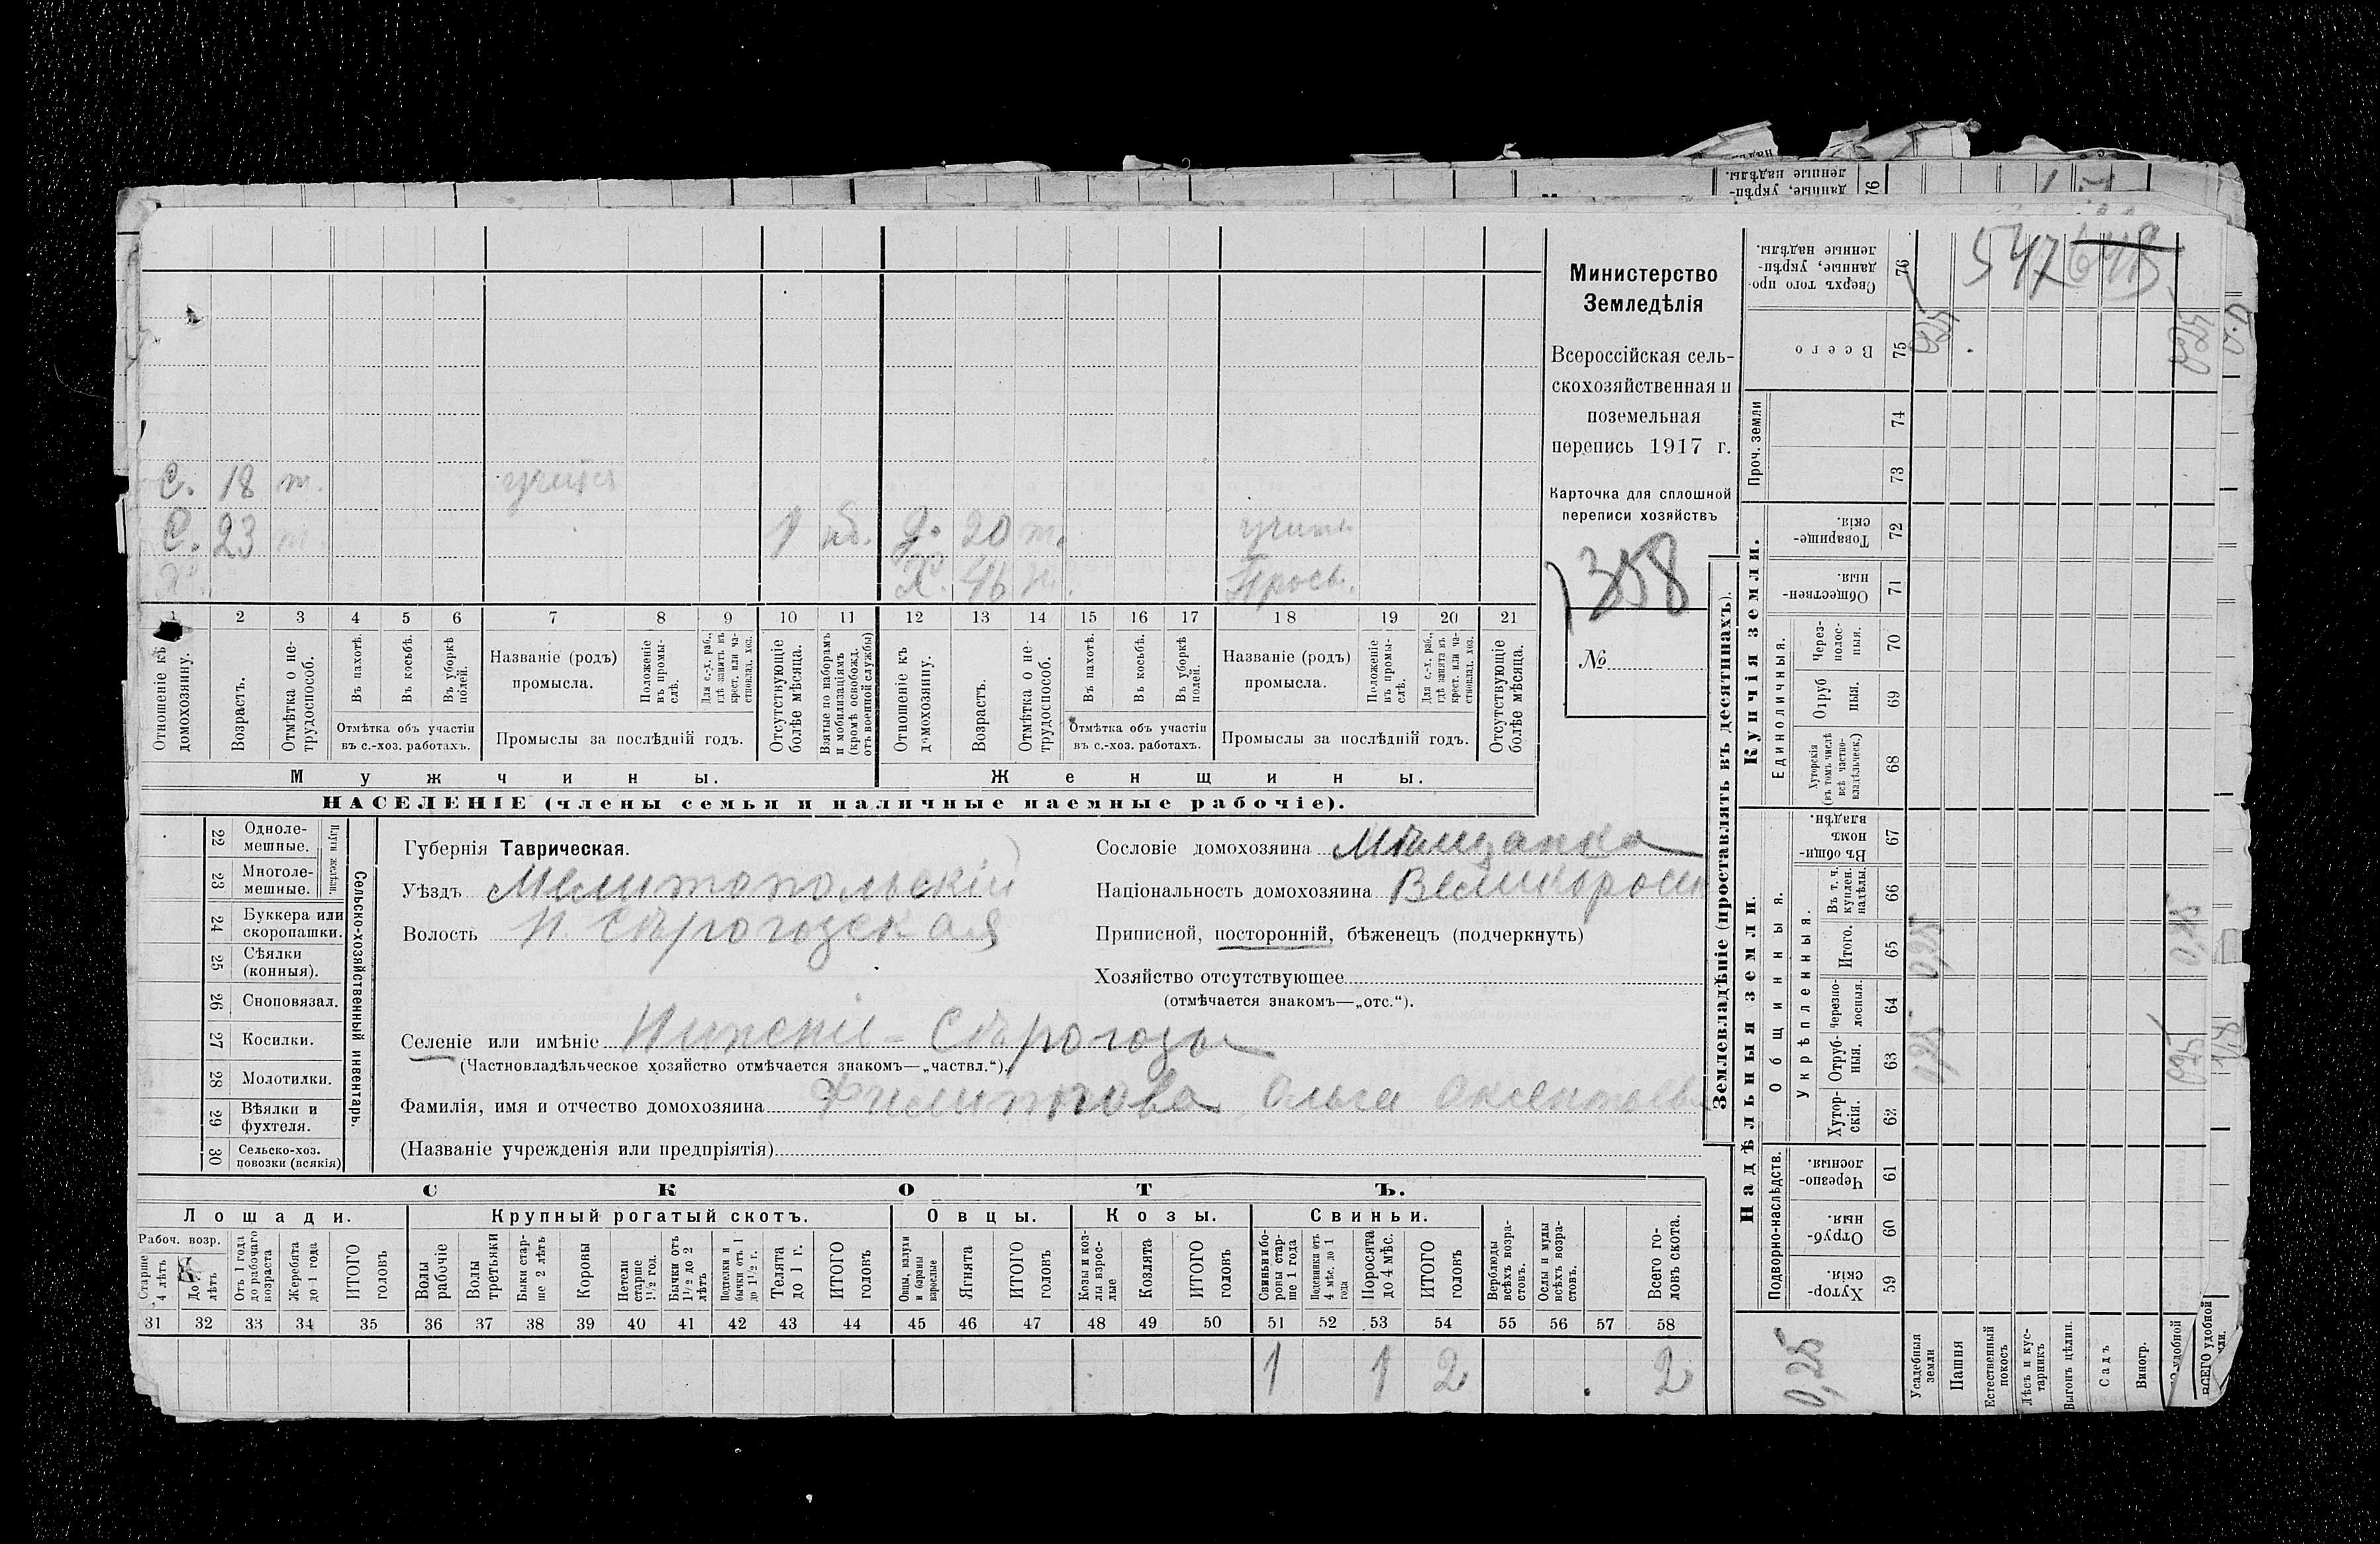 547 648
Министерство
Земледѣлія
Всероссійская сель-
скохозяйственная и
поземельная
перепись 1917 г.
Карточка для сплошной
переписи хозяйствъ
358
№
С. 18 т. учится
С. 23 1 нб. Д. 20 т.
Х. Х. 46
1 2 3 4 5 6 7 8 9 10 11 12 13 14 15 16 17 18 19 20 21
Отношеніе къ домохозяину.
Возрастъ.
Отмѣтка о не-трудоспособ.
Въ пахотѣ.
Въ косьбѣ.
Въ уборкѣ полей.
Отмѣтка объ участіи
въ с.-хоз. работахъ.
Названіе (родъ)
промысла.
Положеніе въ промы-слѣ.
Для с.-х. раб., гдѣ занятъ въ крест. или ча-стновлад. хоз.
Промыслы за послѣдній годъ.
Отсутствующіе болѣе мѣсяца.
Взятые по наборамъ и мобилизаціямъ (кромѣ освобожд. отъ военной службы)
Отношеніе къ домохозяину.
Возрастъ.
Отмѣтка о не-трудоспособ.
Въ пахотѣ.
Въ косьбѣ.
Въ уборкѣ полей.
Отмѣтка объ участіи
въ с.-хоз. работахъ.
Названіе (родъ)
промысла.
Положеніе въ промы-слѣ.
Для с.-х. раб., гдѣ занята въ крест. или ча-стновлад. хоз.
Промыслы за послѣдній годъ.
Отсутствующіе болѣе мѣсяца.
Мужчины. Женщины.
НАСЕЛЕНІЕ (члены семьи и наличные наемные рабочіе).
22 Одноле-мешные.
23 Многоле-мешные.
Плуги желѣзн.
24 Буккера или скоропашки.
25 Сѣялки (конныя).
26 Сноповязал.
27 Косилки.
28 Молотилки.
29 Вѣялки и фухтеля.
30 Сельско-хоз. повозки (всякія)
Сельско-хозяйственный инвентарь.
Губернія Таврическая.
Уѣздъ Мелитопольскій
Волость Н Сѣрогозская
Сословіе домохозяина Мѣщанка
Національность домохозяина Великоросс
Приписной, посторонній, бѣженецъ (подчеркнуть)
Хозяйство отсутствующее
(отмѣчается знакомъ—„отс.“).
Селеніе или имѣніе Нижніе - Сѣрогозы
(Частновладѣльческое хозяйство отмѣчается знакомъ—„частвл.“).
Фамилія, имя и отчество домохозяина Филиппова Ольга
(Названіе учрежденія или предпріятія)
СКОТЪ.
Лошади. Крупный рогатый скотъ. Овцы. Козы. Свиньи.
Рабоч. возр.
Старше 4 лѣтъ
До 4 лѣтъ
Отъ 1 года до рабочаго возраста
Жеребята до 1 года
ИТОГО головъ
Волы рабочіе
Волы третьяки
Быки стар-ше 2 лѣтъ
Коровы
Нетели старше 1½ год.
Бычки отъ 1½ до 2 лѣтъ
Подтелки и бычки отъ 1 до 1½ г.
Телята до 1 г.
ИТОГО головъ
Овцы, валухи и бараны взрослые
Ягнята
ИТОГО головъ
Козы и коз-лы взрос-лые
Козлята
ИТОГО головъ
Свиньи и бо-ровы стар-ше 1 года
Подсвинки отъ 4 мѣс. до 1 года
Поросята до 4 мѣс.
ИТОГО головъ
Верблюды всѣхъ возра-стовъ.
Ослы и мулы всѣхъ возра-стовъ.
Всего го-ловъ скота.
31 32 33 34 35 36 37 38 39 40 41 42 43 44 45 46 47 48 49 50 51 52 53 54 55 56 57 58
1 1 2 2
Землевладѣніе (проставлять въ десятинахъ).
Надѣльныя земли.
Купчія земли.
Проч. земли
Подворно-наслѣдств.
Общинныя.
Укрѣпленныя.
Единоличныя.
Хутор-скія. 59
Отруб-ныя. 60
Черезпо-лосныя. 61
Хутор-скія. 62
Отруб-ныя. 63
Черезпо-лосныя. 64
Итого. 65
Въ т. ч. куплен. надѣлы. 66
Въ общи-номъ владѣн. 67
Хуторскія (въ томъ числѣ всѣ частно-владѣльческ.) 68
Отруб ныя. 69
Через-полос-ныя. 70
Обществен-ныя. 71
Товарище-скія. 72
73
74
Всего 75
Сверхъ того про-данные, укрѣп-ленные надѣлы. 76
Усадебныя земли
Пашня
Естественный покосъ
Лѣсъ и кус-тарникъ
Выгонъ цѣлин.
Садъ
Виногр.
ВСЕГО удобной
0,25